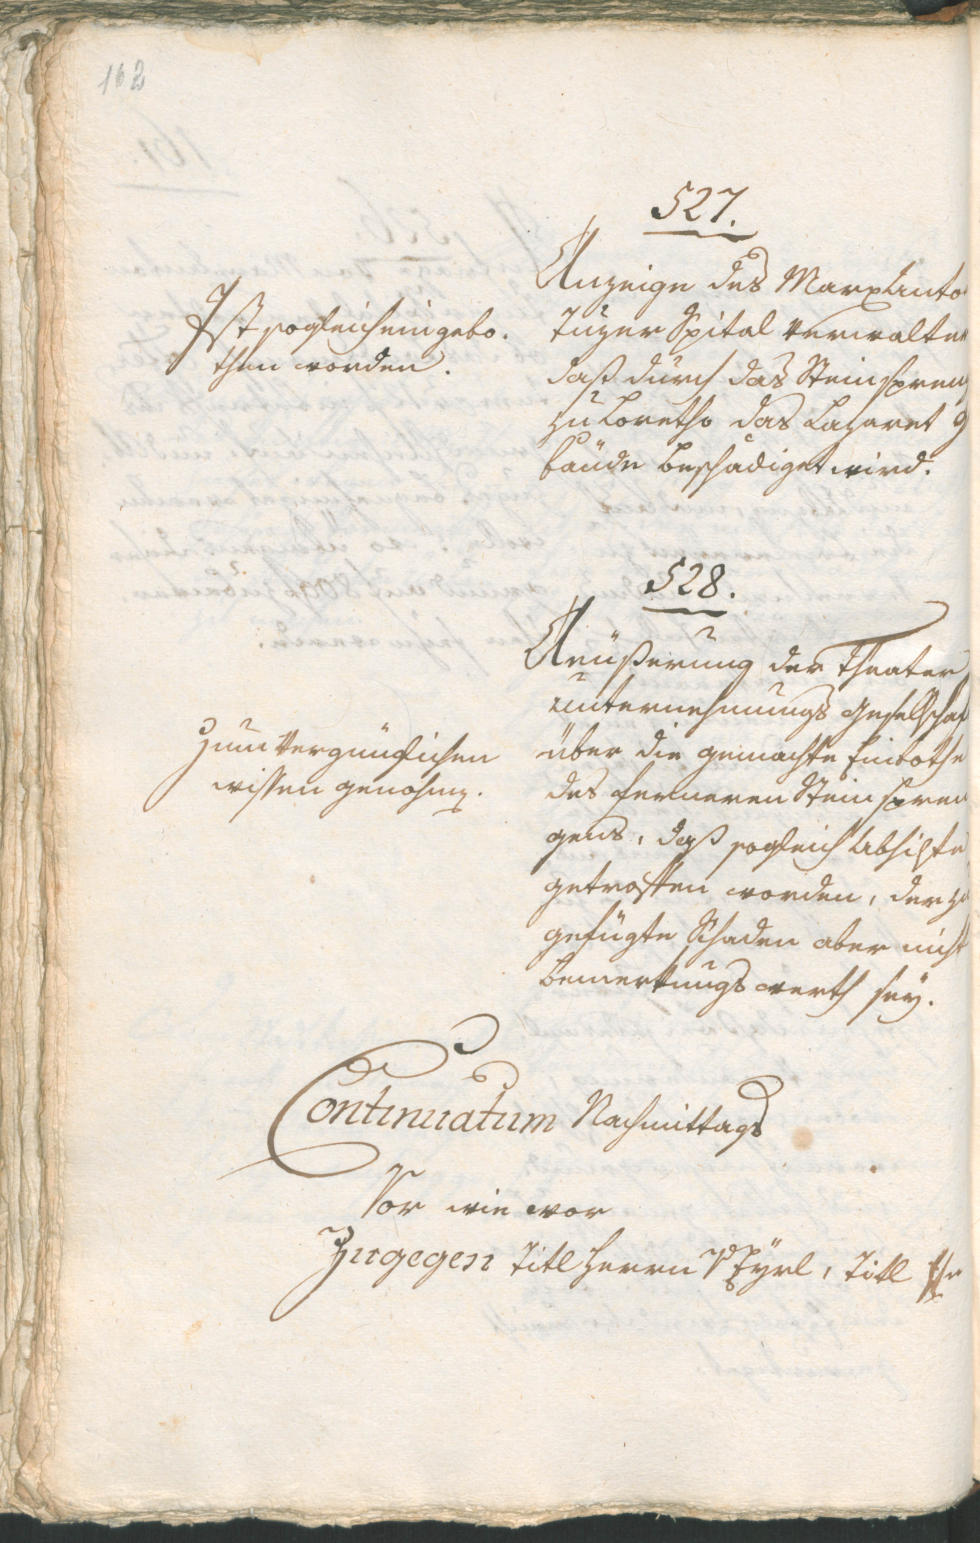 162
527.
Anzeige des Marx Anto
Tuzer Spital Verwalter
daß durch das Steinspreng
zu Loretho das Lazaret g
bäude beschädiget wird.
Ist sogleich eingebo.
then worden.
528.
Aeüßerung der Theater
unternehmungs Gesellschaf
über die gemachte Einbothe
des ferneren Steinspren
gens, daß sogleich Abhilfe
getroffen worden, der zu
gefügte Schaden aber nicht
bemerkungswerth sey.
Zum vergnüglichen
wissen genohm̅.
Continuatum Nachmittags
Vor wie vor
Zugegen Titl Herrn v Eyrl, Titl